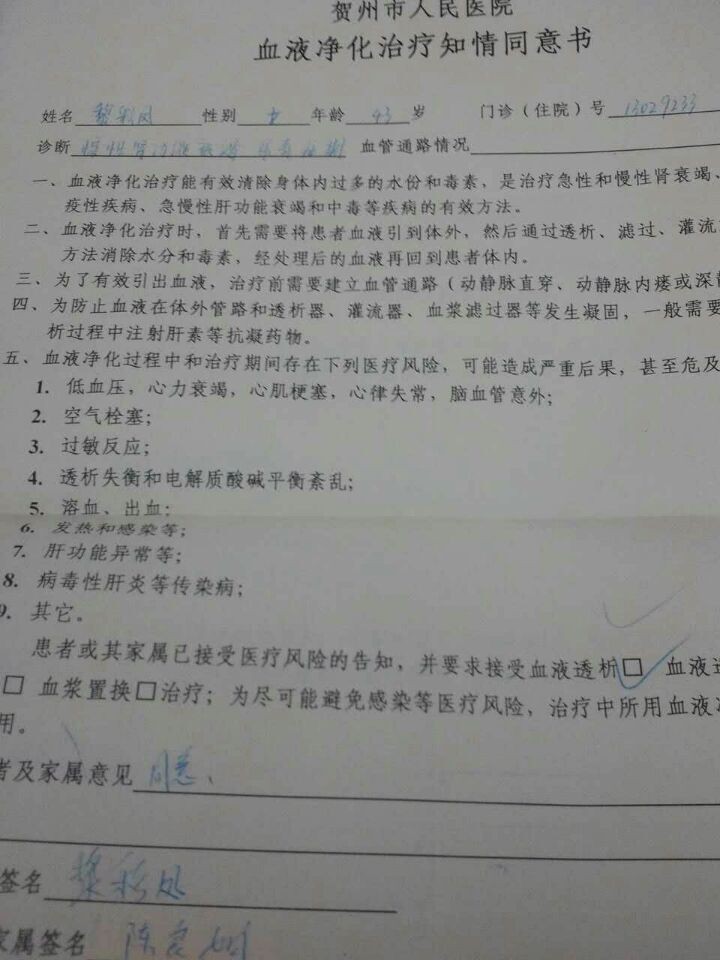 贺州市人民医院
血液净化治疗知情同意书
姓名 黎彩凤 性别 女 年龄 43 岁 门诊（住院）号 13029233
诊断 慢性肾功能衰竭 尿毒症期 血管通路情况
一、血液净化治疗能有效清除身体内过多的水份和毒素，是治疗急性和慢性肾衰竭、
疫性疾病、急慢性肝功能衰竭和中毒等疾病的有效方法。
二、血液净化治疗时，首先需要将患者血液引到体外，然后通过透析、滤过、灌流
方法消除水分和毒素，经处理后的血液再回到患者体内。
三、为了有效引出血液，治疗前需要建立血管通路（动静脉直穿、动静脉内瘘或深静
四、为防止血液在体外管路和透析器、灌流器、血浆滤过器等发生凝固，一般需要
析过程中注射肝素等抗凝药物。
五、血液净化过程中和治疗期间存在下列医疗风险，可能造成严重后果，甚至危及
1. 低血压，心力衰竭，心肌梗塞，心律失常，脑血管意外；
2. 空气栓塞；
3. 过敏反应；
4. 透析失衡和电解质酸碱平衡紊乱；
5. 溶血、出血；
6. 发热和感染等；
7. 肝功能异常等；
8. 病毒性肝炎等传染病；
9. 其它。
患者或其家属已接受医疗风险的告知，并要求接受血液透析□✓ 血液透
□ 血浆置换□治疗；为尽可能避免感染等医疗风险，治疗中所用血液净
用。
者及家属意见 同意、
签名 黎彩凤
家属签名 陈